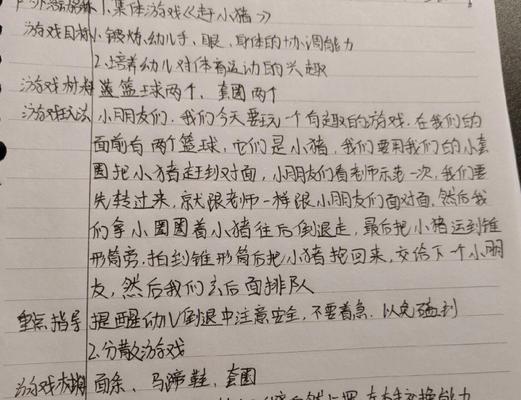 户外游戏 1.集体游戏《赶小猪》
游戏目标 1.锻炼幼儿手、眼、身体的协调能力
2.培养幼儿对体育运动的兴趣
游戏材料 篮球两个、套圈两个
游戏玩法 小朋友们,我们今天要玩一个有趣的游戏.在我们的
面前有两个篮球,它们是小猪,我们要用我们的小套
圈把小猪赶到对面,小朋友们看老师示范一次,我们要
先转过来,就跟老师一样跟小朋友们面对面,然后我
们拿小圈圈着小猪往后倒退走,最后把小猪运到锥
形筒旁.拍到锥形筒后把小猪抱回来,交给下一个小朋
友,然后我们去后面排队
重点指导 提醒幼儿倒退中注意安全,不要着急.以免碰到
2.分散游戏
游戏材料 面条、马蹄鞋、套圈
左右手交换能力